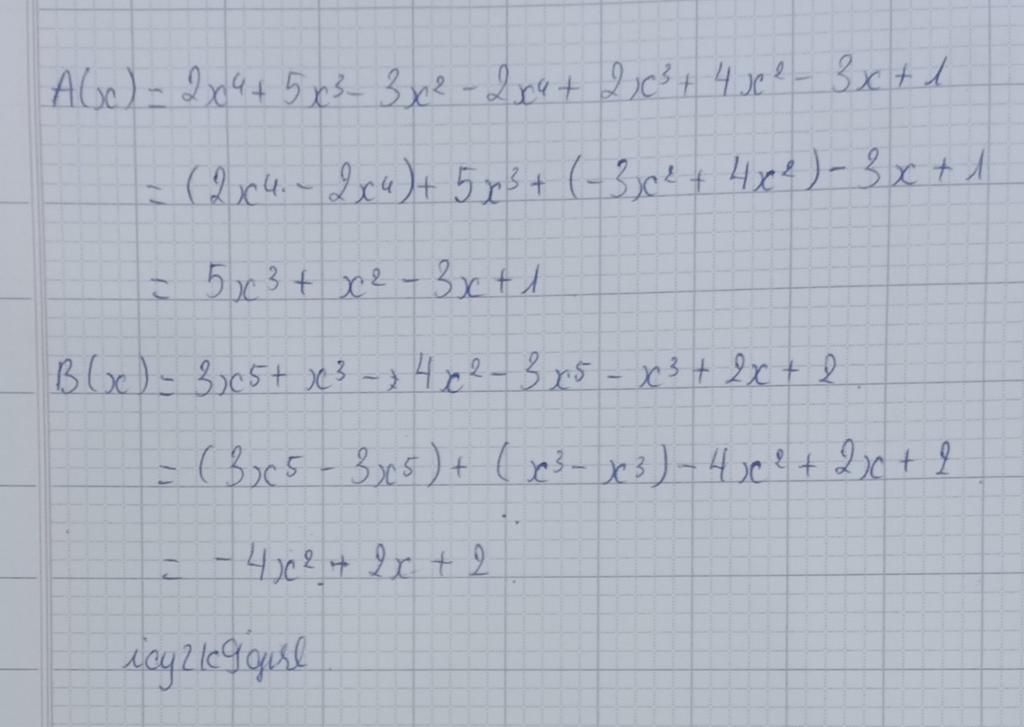 A(x) = 2x⁴ + 5x³ - 3x² - 2x⁴ + 2x³ + 4x² - 3x + 1
= (2x⁴ - 2x⁴) + 5x³ + (-3x² + 4x²) - 3x + 1
= 5x³ + x² - 3x + 1
B(x) = 3x⁵ + x³ - 4x² - 3x⁵ - x³ + 2x + 2
= (3x⁵ - 3x⁵) + (x³ - x³) - 4x² + 2x + 2
= -4x² + 2x + 2